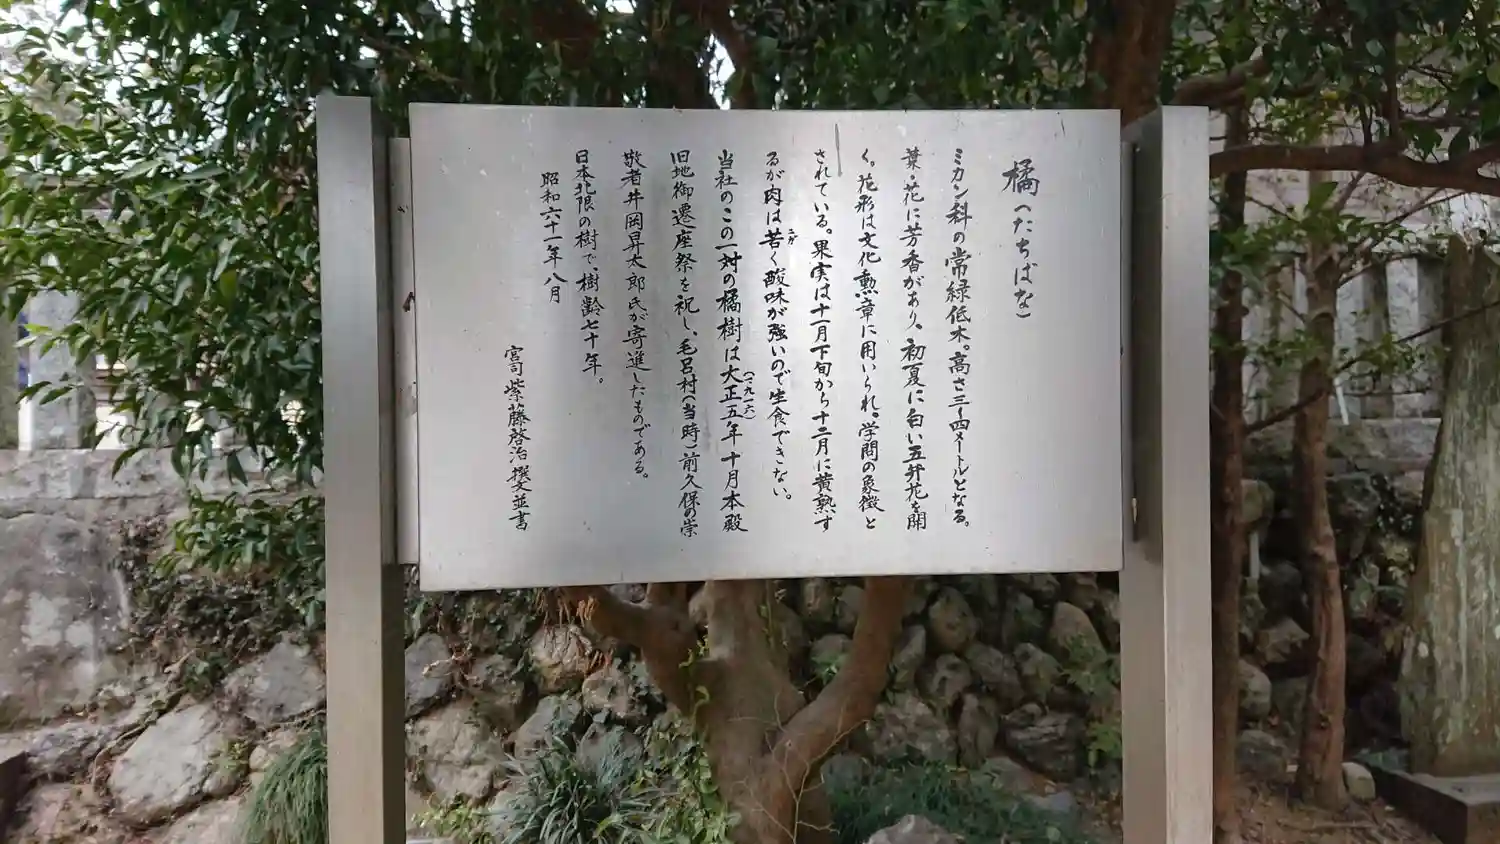 橘(たちばな)
ミカン科の常緑低木。高さ三〜四メートルとなる。
葉・花に芳香があり、初夏に白い五弁花を開
く。花形は文化勲章に用いられ。学問の象徴と
されている。果実は十一月下旬から十二月に黄熟す
るが肉は苦く酸味が強いので生食できない。
にが
当社のこの一対の橘樹は大正五年十月本殿
(一九一六)
旧地御遷座祭を祝し、毛呂村(当時)前久保の崇
敬者井岡昇太郎氏が寄進したものである。
日本北限の樹で、樹齢七十年。
昭和六十一年八月
宮司紫藤啓治撰文並書